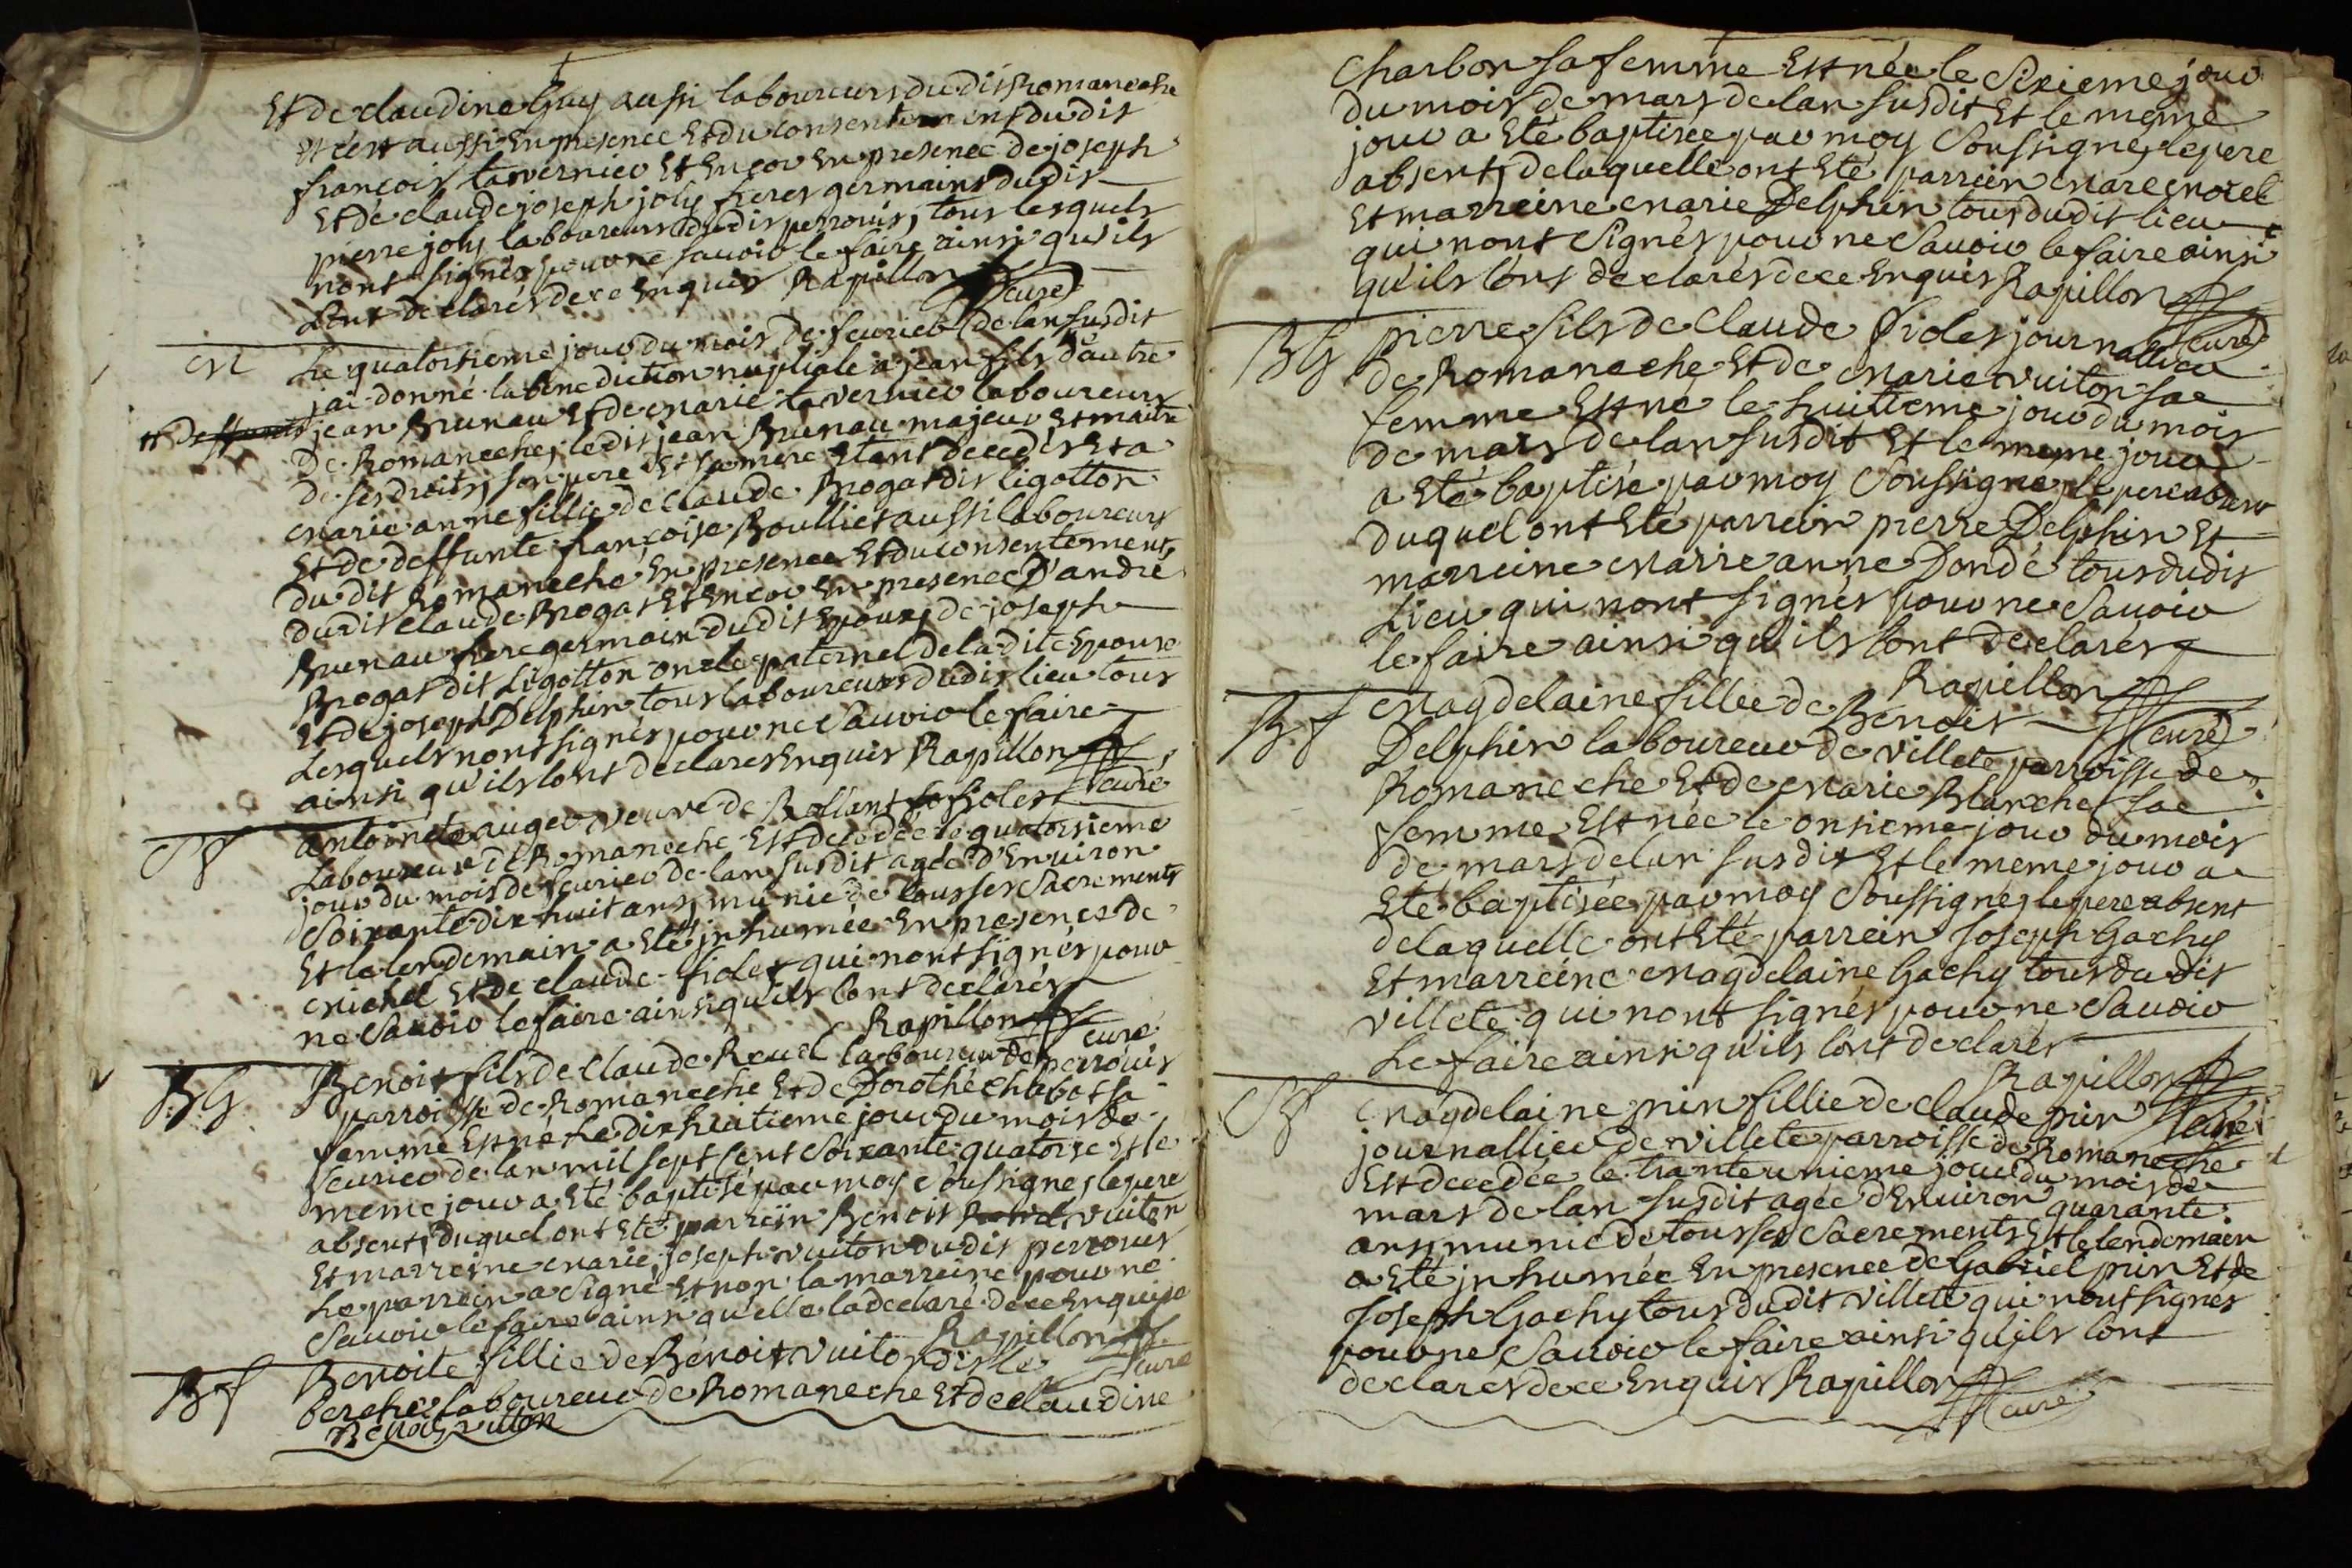 Et de claudine Guy aussi laboureurs du dit Romaneche
et c'est aussi En presence Et du consentement du dit
françois tavernier Et Encor En presence de joseph
Et de claude joseph joly freres germains du dit
pierre joly laboureurs du dit perrouis, tous lesquels
n'ont signés pour ne savoir le faire ainsi qu'ils
Lont declarés de ce Enquis Rapillon curé
M Le quatorsieme jour du mois de feurier de lan susdit
jai donné la benediction nuptiale a jean fils d'autre
jean Brunau Et de marie tavernier laboureurs
de Romaneche, le dit jean Brunau majeur Et maitre
de ses droits, son pere Et sa mere Etant decedés Et a
marie anne fillie de Claude Brogat dit ligotton
Et de deffunte françoise Boulliet aussi laboureurs
du dit Romaneche En presence Et du consentement
du dit Claude Brogat Et Encor En presence D'andre
Brunau frere germain du dit Epoux, de joseph
Brogat dit Ligotton oncle paternel de la dite Epouse
Et de joseph Delphin tous laboureurs du dit lieu tous
Lesquels n'ont signés pour ne Sauoir le faire
ainsi qu'ils lont declarés Enquis Rapillon curé
Sf antoinete auger veuve de Rollant fiolet
Laboureur de Romaneche Est decedée le quatorsieme
jour du mois de feurier de lan susdit agée d'Enuiron
Soixante dix huit ans, munie de tous ses Sacrements
Et le lendemain a Eté jnhumée En presence de
michel Et de claude fiolet qui n'ont signés pour
ne Sauoir le faire ainsi qu'ils lont declarés
Rapillon curé
BG Benoit fils de Claude Reuel laboureur de perrouis
parroisse de Romaneche Et de Dorothé chabot sa
femme Est né le dix huitieme jour du mois de
feurier de lan mil sept Cent Soixante quatorse Et le
meme jour a Eté baptisé par moy Soussigné, le pere
absent, duquel ont Eté parrein Benoit vuiton
Et marreine marie, joseph vuiton du dit perrouis
Le parrein a Signé Et non la marreine pour ne
Sauoir le faire ainsi qu'elle la declaré de ce Enquise
Rapillon curé
Bf Benoite fillie de Benoit vuiton dit le
berche laboureur de Romaneche Et de claudine
Benoit vuiton
Charbon sa femme Est née le Sixieme jour
du mois de mars de lan susdit Et le meme
jour a Eté baptisée par moy Soussigné, le pere
absent, de laquelle ont Eté parrein marc morel
Et marreine marie Delphin tous du dit lieu
qui n'ont Signés pour ne Sauoir le faire ainsi
qu'ils l'ont declarés de ce Enquis Rapillon curé
BG pierre fils de Claude fiolet journallier
de Romaneche Et de marie vuiton sa
femme Est né le huitieme jour du mois
de mars de lan susdit Et le meme jour
a Eté baptisé par moy Soussigné, le pere absent
duquel ont Eté parrein pierre Delphin Et
marreine marie anne Dondé tous du dit
Lieu qui n'ont signés pour ne Sauoir
le faire ainsi qu'ils lont declarés
Rapillon curé
Bf magdelaine fillie de Benoit
Delphin laboureur de villete parroisse de
Romaneche Et de marie Blanche sa
femme Est née le onsieme jour du mois
de mars de lan susdit Et le meme jour a
Eté baptisée par moy Soussigné, le pere absent
de laquelle ont Eté parrein joseph Gachy
Et marreine magdelaine Gachy tous du dit
villete qui n'ont signés pour ne Sauoir
Le faire ainsi qu'ils lont declarés
Rapillon curé
Sf magdelaine pin fillie de claude pin
journallier de villete parroisse de Romaneche
Est decedée le trante unieme jour du mois de
mars de lan susdit agée d'Enuiron quarante
ans, munie de tous ses Sacrements Et le lendemain
a Eté jnhumée En presence de Gabriel pin Et de
joseph Gachy tous du dit villete qui n'ont signes
pour ne Sauoir le faire ainsi qu'ils lont
declarés de ce Enquis Rapillon curé